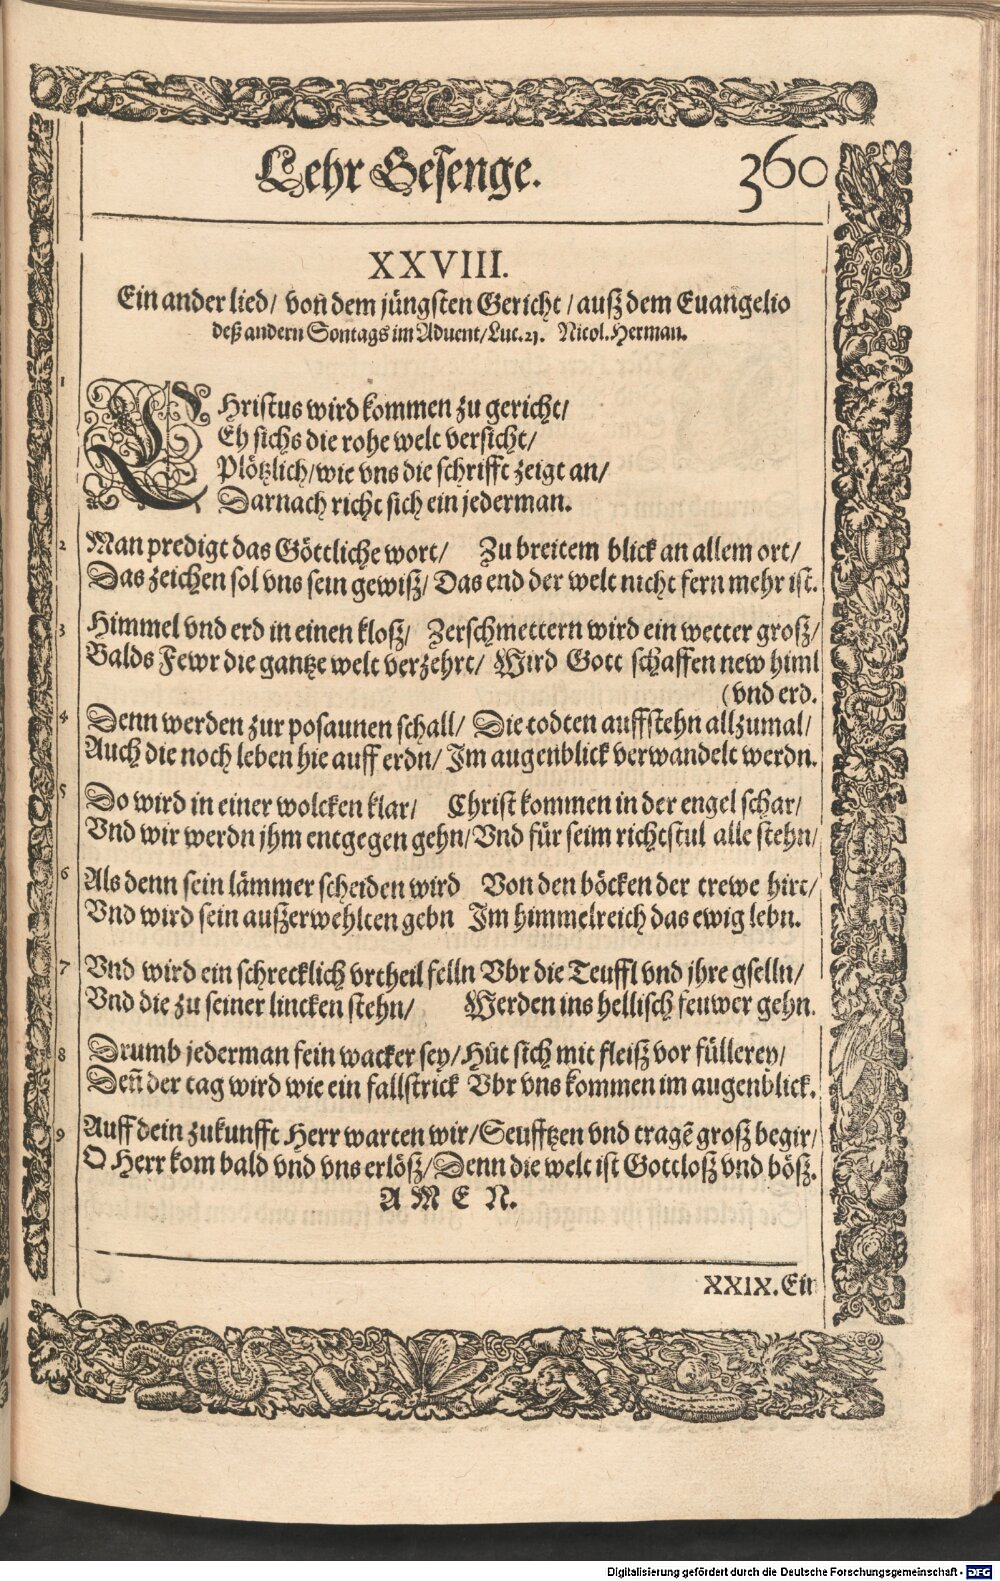 Lehr Gesenge. 360
XXVIII.
Ein ander lied/ von dem jüngsten Gericht/ auß dem Euangelio
deß andern Sontags im Aduent/ Luc. 21. Nicol. Herman.
1
CHristus wird kommen zu gericht/
Eh sichs die rohe welt versicht/
Plötzlich/ wie vns die schrifft zeigt an/
Darnach richt sich ein jederman.
2 Man predigt das Göttliche wort/ Zu breitem blick an allem ort/
Das zeichen sol vns sein gewiß/ Das end der welt nicht fern mehr ist.
3 Himmel vnd erd in einen kloß/ Zerschmettern wird ein wetter groß/
Balds Fewr die gantze welt verzehrt/ Wird Gott schaffen new himl
(vnd erd.
4 Denn werden zur posaunen schall/ Die todten auffstehn allzumal/
Auch die noch leben hie auff erdn/ Im augenblick verwandelt werdn.
5 Do wird in einer wolcken klar/ Christ kommen in der engel schar/
Vnd wir werdn jhm entgegen gehn/ Vnd für seim richtstul alle stehn/
6 Als denn sein lämmer scheiden wird Von den böcken der trewe hirt/
Vnd wird sein außerwehlten gebn Im himmelreich das ewig lebn.
7 Vnd wird ein schrecklich vrtheil felln Vbr die Teuffl vnd jhre gselln/
Vnd die zu seiner lincken stehn/ Werden ins hellisch feuwer gehn.
8 Drumb jederman fein wacker sey/ Hüt sich mit fleiß vor füllerey/
Deñ der tag wird wie ein fallstrick Vbr vns kommen im augenblick.
9 Auff dein zukunfft Herr warten wir/ Seufftzen vnd tragẽ groß begir/
O Herr kom bald vnd vns erlöß/ Denn die welt ist Gottloß vnd böß.
A M E N.
XXIX. Ein
Digitalisierung gefördert durch die Deutsche Forschungsgemeinschaft - DFG